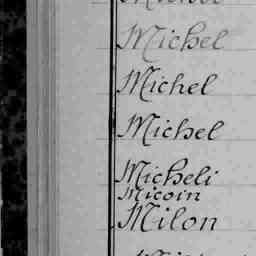 Michel
Michel
Michel
Micheli
Micoin
Milon